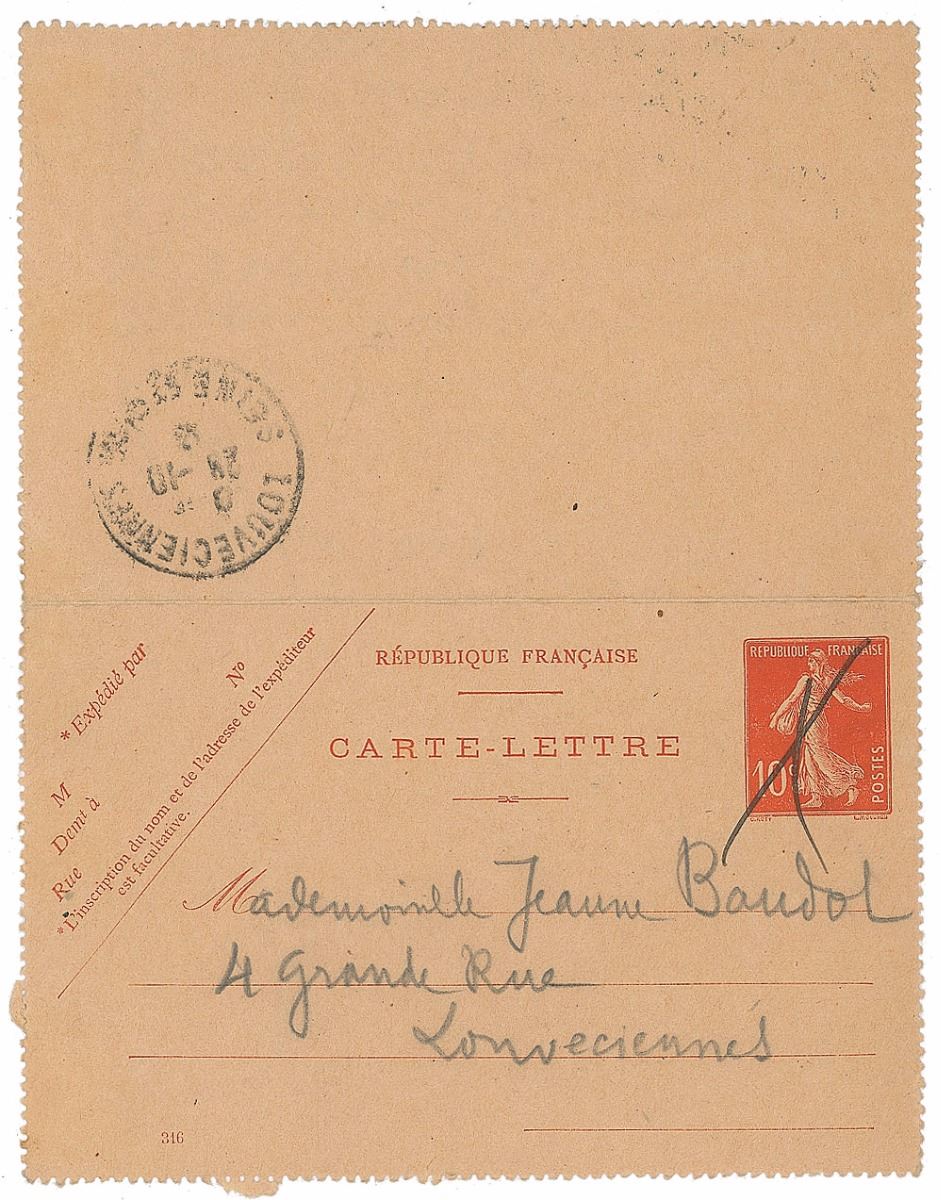 SEINE ET OISE
28 -10
LOUVECIENNES
RÉPUBLIQUE FRANÇAISE
CARTE-LETTRE
RÉPUBLIQUE FRANÇAISE
10 c
POSTES
* Expédié par
N°
M
Demt à
Rue
*L'inscription du nom et de l'adresse de l'expéditeur
est facultative.
Mademoiselle Jeanne Baudot
4 Grande Rue
Louveciennes
316